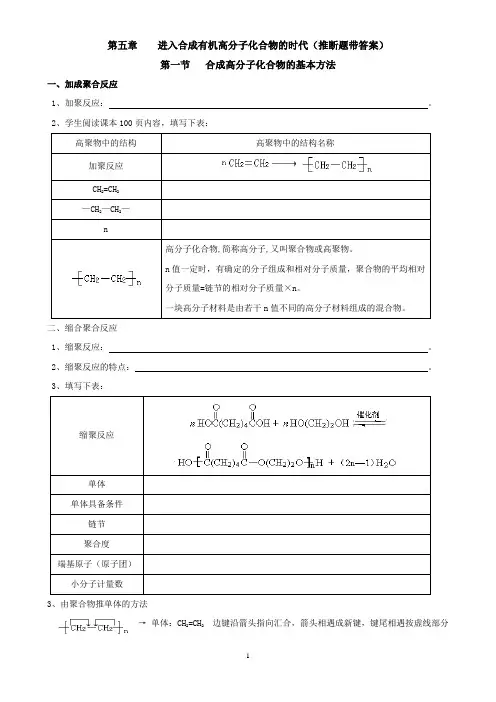 第五章 进入合成有机高分子化合物的时代（推断题带答案）
第一节 合成高分子化合物的基本方法
一、加成聚合反应
1、加聚反应： 。
2、学生阅读课本100页内容，填写下表：
高聚物中的结构 高聚物中的结构名称
加聚反应 nCH₂=CH₂ ⟶ [CH₂—CH₂]n
CH₂=CH₂
—CH₂—CH₂—
n
[CH₂—CH₂]n
高分子化合物,简称高分子,又叫聚合物或高聚物。
n值一定时，有确定的分子组成和相对分子质量，聚合物的平均相对
分子质量=链节的相对分子质量×n。
一块高分子材料是由若干n值不同的高分子材料组成的混合物。
二、缩合聚合反应
1、缩聚反应： 。
2、缩聚反应的特点： 。
3、填写下表：
缩聚反应
O O
nHOC(CH₂)₄COH + nHO(CH₂)₂OH 催化剂
O O
HO[C(CH₂)₄C—O(CH₂)₂O]nH + (2n—1)H₂O
单体
单体具备条件
链节
聚合度
端基原子（原子团）
小分子计量数
3、由聚合物推单体的方法
[CH₂—CH₂]n → 单体：CH₂=CH₂ 边键沿箭头指向汇合，箭头相遇成新键，键尾相遇按虚线部分
1